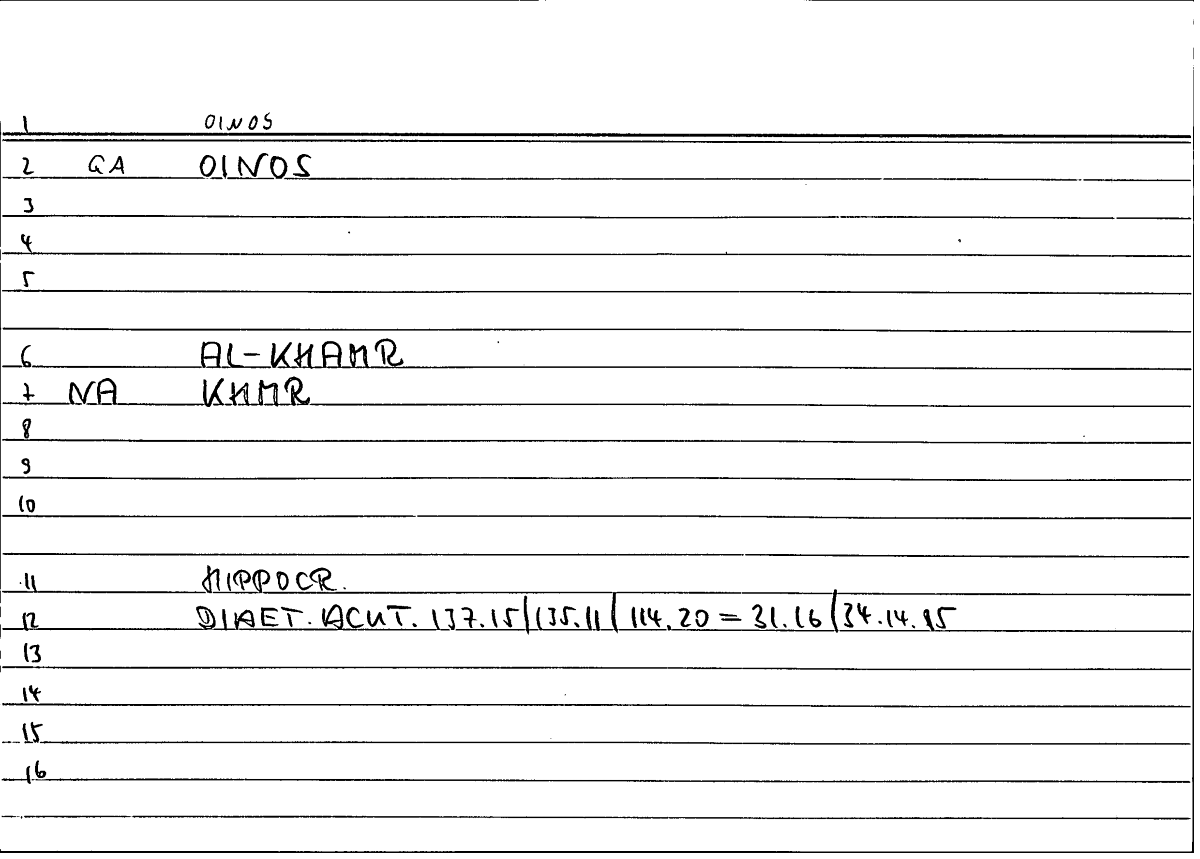 1 OINOS
2 GA OINOS
3
4
5
6 AL-KHAMR
7 NA KHMR
8
9
10
11 HIPPOCR.
12 DIAET. ACUT. 137.15|135.11|114.20=31.16|34.14.15
13
14
15
16